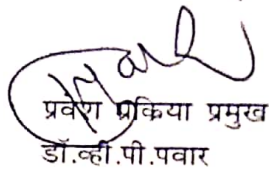 प्रवेश प्रक्रिया प्रमुख
डॉ.व्ही.पी.पवार